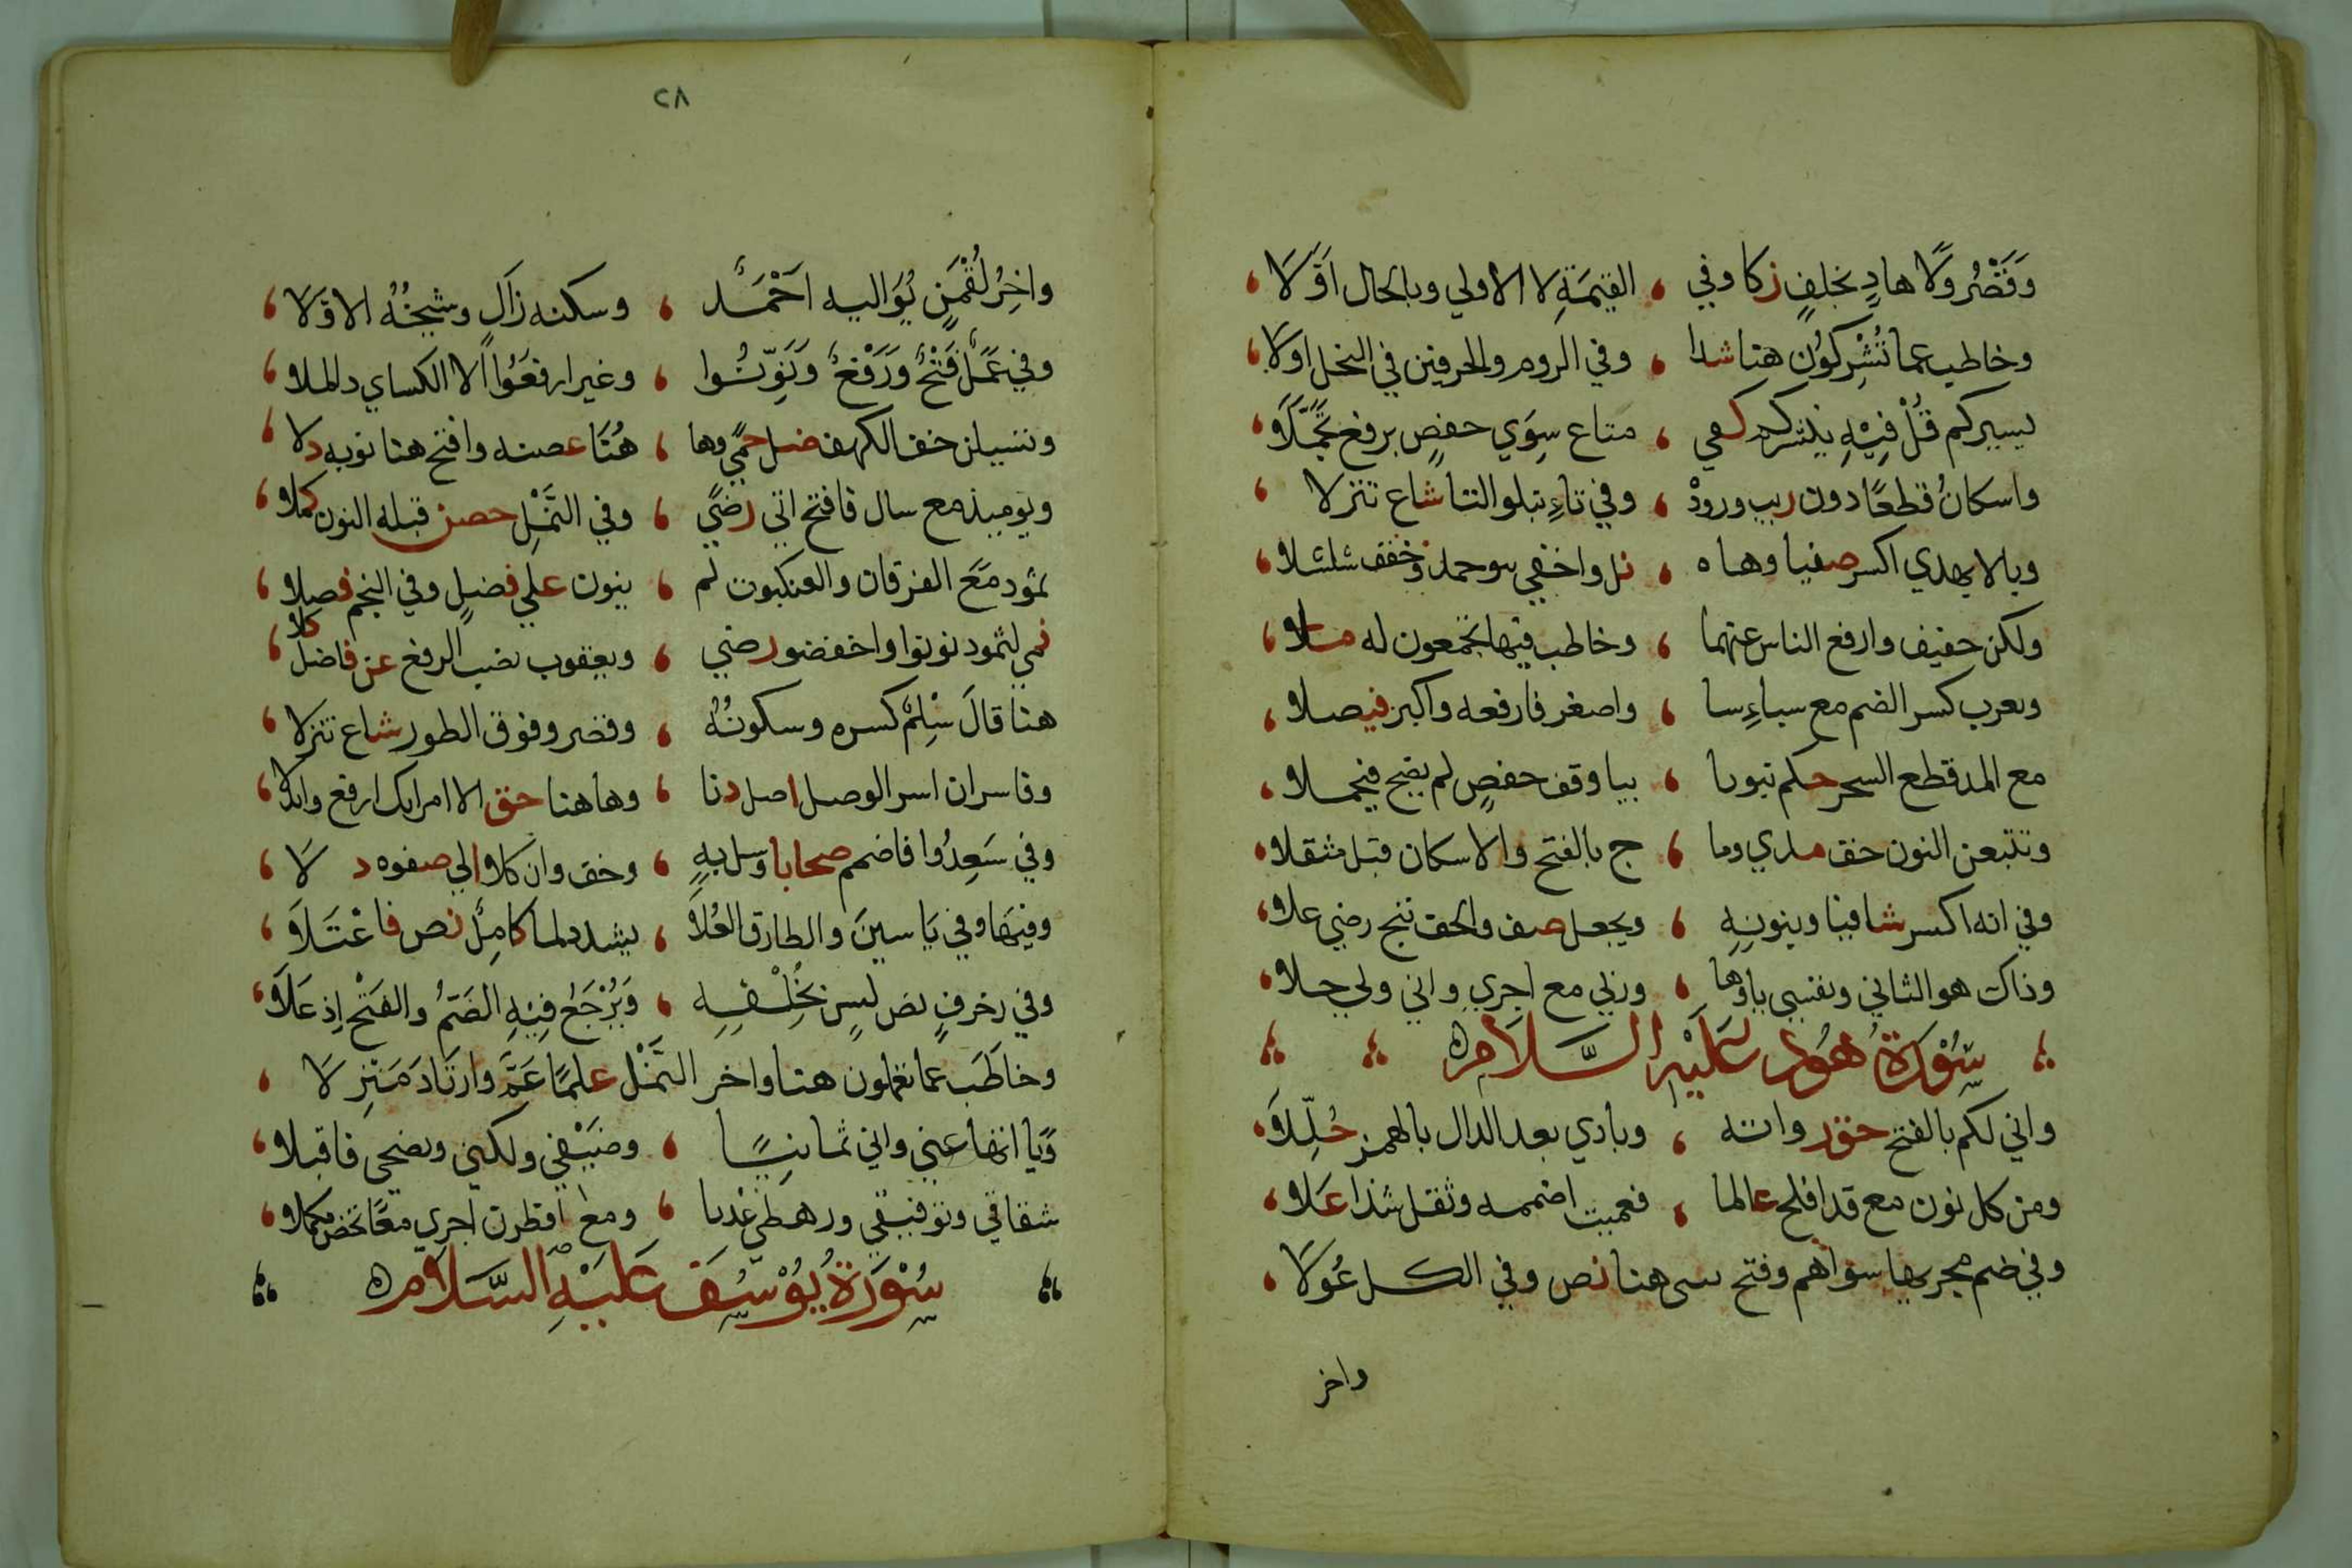 وَقَصْرُ وَلَا هادٍ بخلفٍ زكا وفي ، القيٰمَةِ لا الاولي وبالحال اَوَّلَا ،
وخاطب عما تُشْرِكُون هنا شذا ، وفي الروم والحرفين في النحل اولا ،
يسيركم قُلْ فِيْهِ ينشركم كفي ، متاع سِوَي حفصٍ برفع تَحَمَّلَا ،
واسكانُ قطعًا دون ريب ورودْ ، وفي تاءِ تبلوا التا شاع تنزلا ،
ويا لا يهدي اكسر صفيا وهاه ، نل واخفي بنو حمد وخفف شلشلا ،
ولكن خفيف وارفع الناس عنهما ، وخاطب فيها تجمعون له ملا ،
ويعزب كسر الضم مع سباءِ رسا ، واصغر فارفعه واكبر فيصلا ،
مع المد قطع السحر حكم تبويا ، بيا وقف حفصٍ لم يصح فيحملا ،
وتتبعن النون خف مدي وما ، ج بالفتح والاسكان قبل مثقلا ،
وفي انه اكسر شافيا وبنونهِ ، ويجعل صف والخف ننج رضي علا ،
وذاك هو الثاني ونفسي ياؤها ، وربي مع اجري واني ولي حلا ،
سُوْرَةُ هُود عَلَيْهِ السَّلَام
واني لكم بالفتح حق رواته ، وبادي بعد الدال بالهمز حُلِّلَا ،
ومن كل نون مع قد افلح عالما ، فعميت اضممه وثقل شذا عَلا ،
وفي ضم مجريها سواهم وفتح يبني هنا نص وفي الكل عُولَا ،
واخر
٢٨
واخِرُ لُقْمٰنٍ يُوَاليه اَحْمَد ، وسكنه زَاكٍ وشيخُهُ الاوَّلَا ،
وفي عَمَلٌ فَتْحٌ وَرَفْعٌ وَنَوِّنُوا ، وغير ارفعُوا الا الكساي ذا الملا ،
وتسيلن خف الكهف ضل حمًي وها ، هُنَا غصنه وافتح هنا نونه دلا ،
ويوميذ مع سال فافتح اتي رضًي ، وفي النَّمْلِ حصن قبله النون كملا ،
ثمود مَعَ الفرقان والعنكبوت لم ، ينون علي فضلٍ وفي النجم فصلا ،
نمي لثمود نونوا واخفضو رضي ، ويعقوب نصب الرفع عن فاضل كلا ،
هنا قالَ سِلمٌ كسره وسكونُهُ ، وقصر وفوق الطور شاع تنزلا ،
وفاسر ان اسر الوصل اصل دنا ، وها هنا حق الا امراتك ارفع وابدلا ،
وفي سَعِدُوا فاضمم صحابا وسل بهِ ، وخف وان كلا الي صفوه د لا ،
وفيها وفي يَاسينَ والطارق العُلَا ، يشدد لما كامِلٌ نص فاعْتَلَا ،
وفي زخرفٍ نص لسٍن بخُلْفِهِ ، وَيُرْجَعُ فِيْهِ الضَمُّ والفَتْح اِذ عَلَا ،
وخاطَب عما تعملون هنا واخر النَّمْل علمًا عَمَّ وارتَادَ مَنْزِلَا ،
وَيا اتها عني واني ثمانيًا ، وضَيْفِي ولكني ونصحي فاقبلا ،
شقاقي وتوفيقي ورهطي عُدها ، ومع فطرن اجري معًا تحص مكملا ،
سُوْرَةُ يُوْسُف عَلَيْهِ السَّلَام